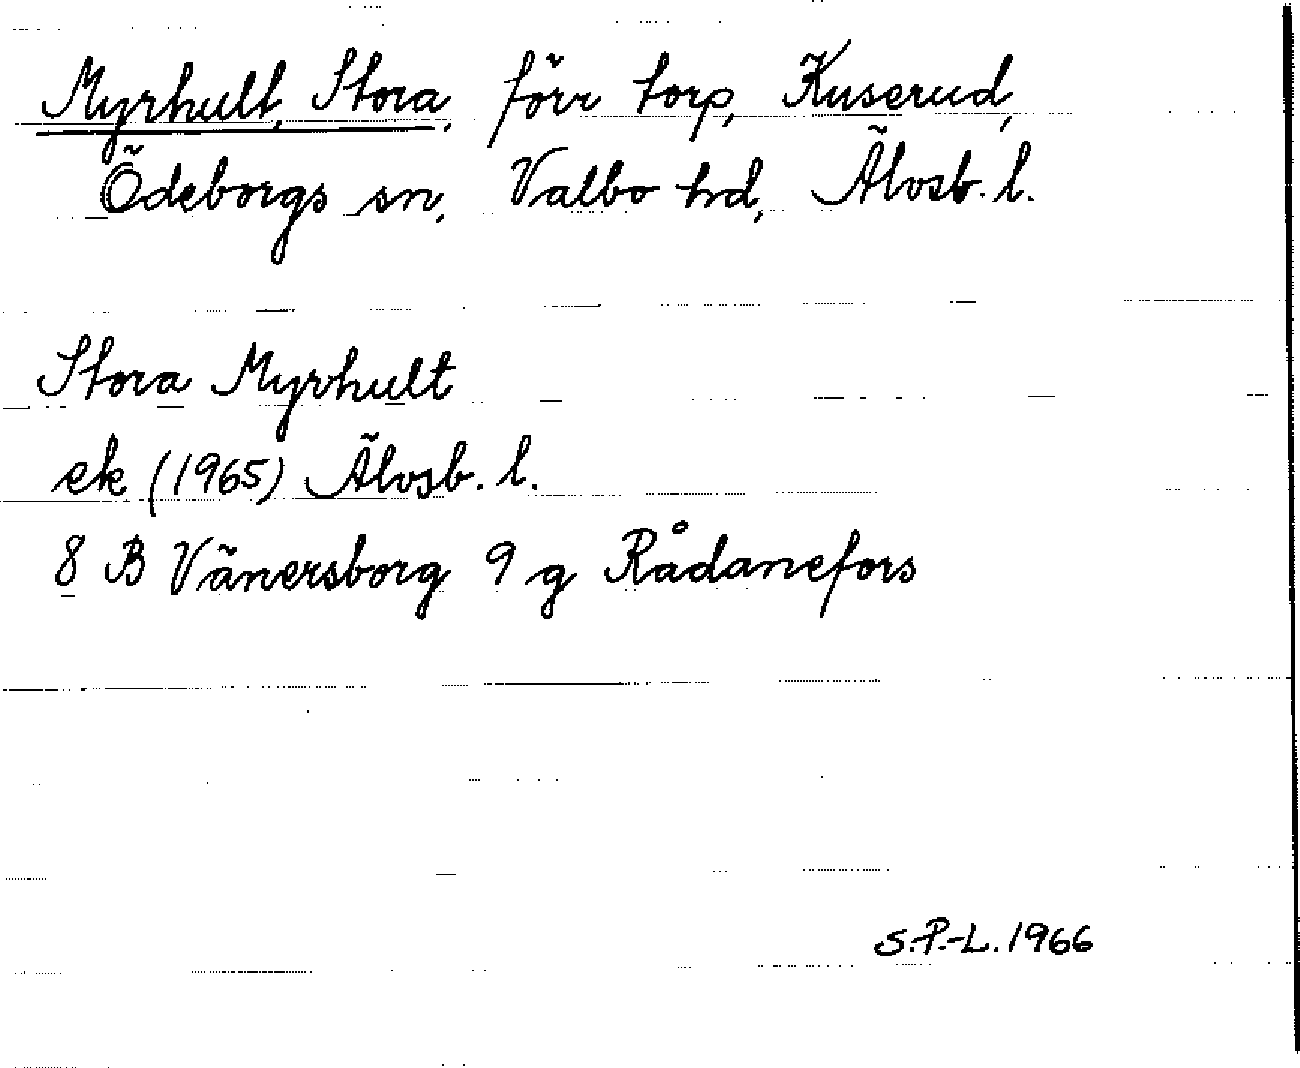 Myrhult, Stora, förr torp, Kuserud,
Ödeborgs sn, Valbo hd, Älvsb. l.
Stora Myrhult
ek (1965) Älvsb. l.
8 B Vänersborg 9 g Rådanefors
S.P.-L. 1966